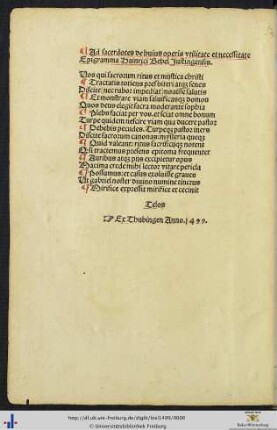 Ad sacerdotes de huius operis vtilitate et necessitate
Epigramma Hainrici Bebel Justingensis.
Vos qui sacrorum ritus et mistica christi
Tractatis totiens presbiteri atqz senes
Discite: nec rubor impediat: nouisse salutis
Et monstrare viam saluificamqz domos
Quos deus elegit sacra moderante sophia
Plebs faciat per vos. et sciat omne bonum
Turpe quidem nescire viam qua ducere pastor
Debebis pecudes. Turpeqz pastor iners
Discite sacrorum canonas: mysteria queqz
Quid valeant: ritus sacrificiiqz notent
Qui tractemus presens epitoma frequentet
Auribus atqz piis excipietur opus
Maxima crede mihi lector vitare pericla
Possumus: et casus euoluisse graues
Ut gabriel noster diuino numine tinctus
Mirifice expressit mirifice et cecinit
Telos
Ex Thubingen Anno. 1499.
http://dl.ub.uni-freiburg.de/diglit/biel1499/0008
© Universitätsbibliothek Freiburg
Baden-Württemberg